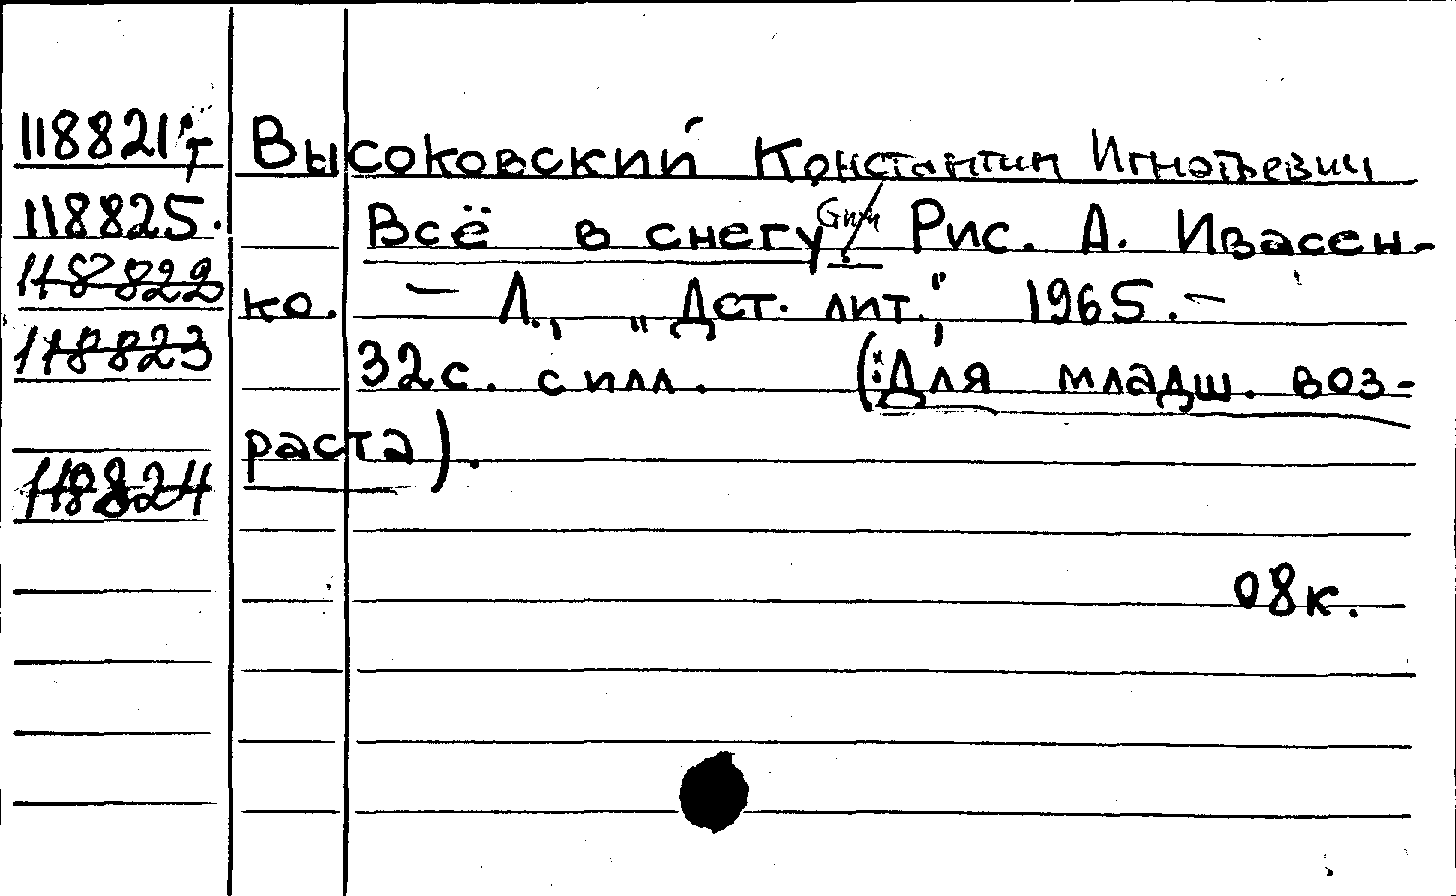 118821т Высоковский Константин Игнатьевич
118825. Всё в снегу. Рис. А. Ивасен-
118822 ко. — Л., „Дет. лит.", 1965. —
118823 32с. с илл. (Для младш. воз-
раста).
118824
08к.